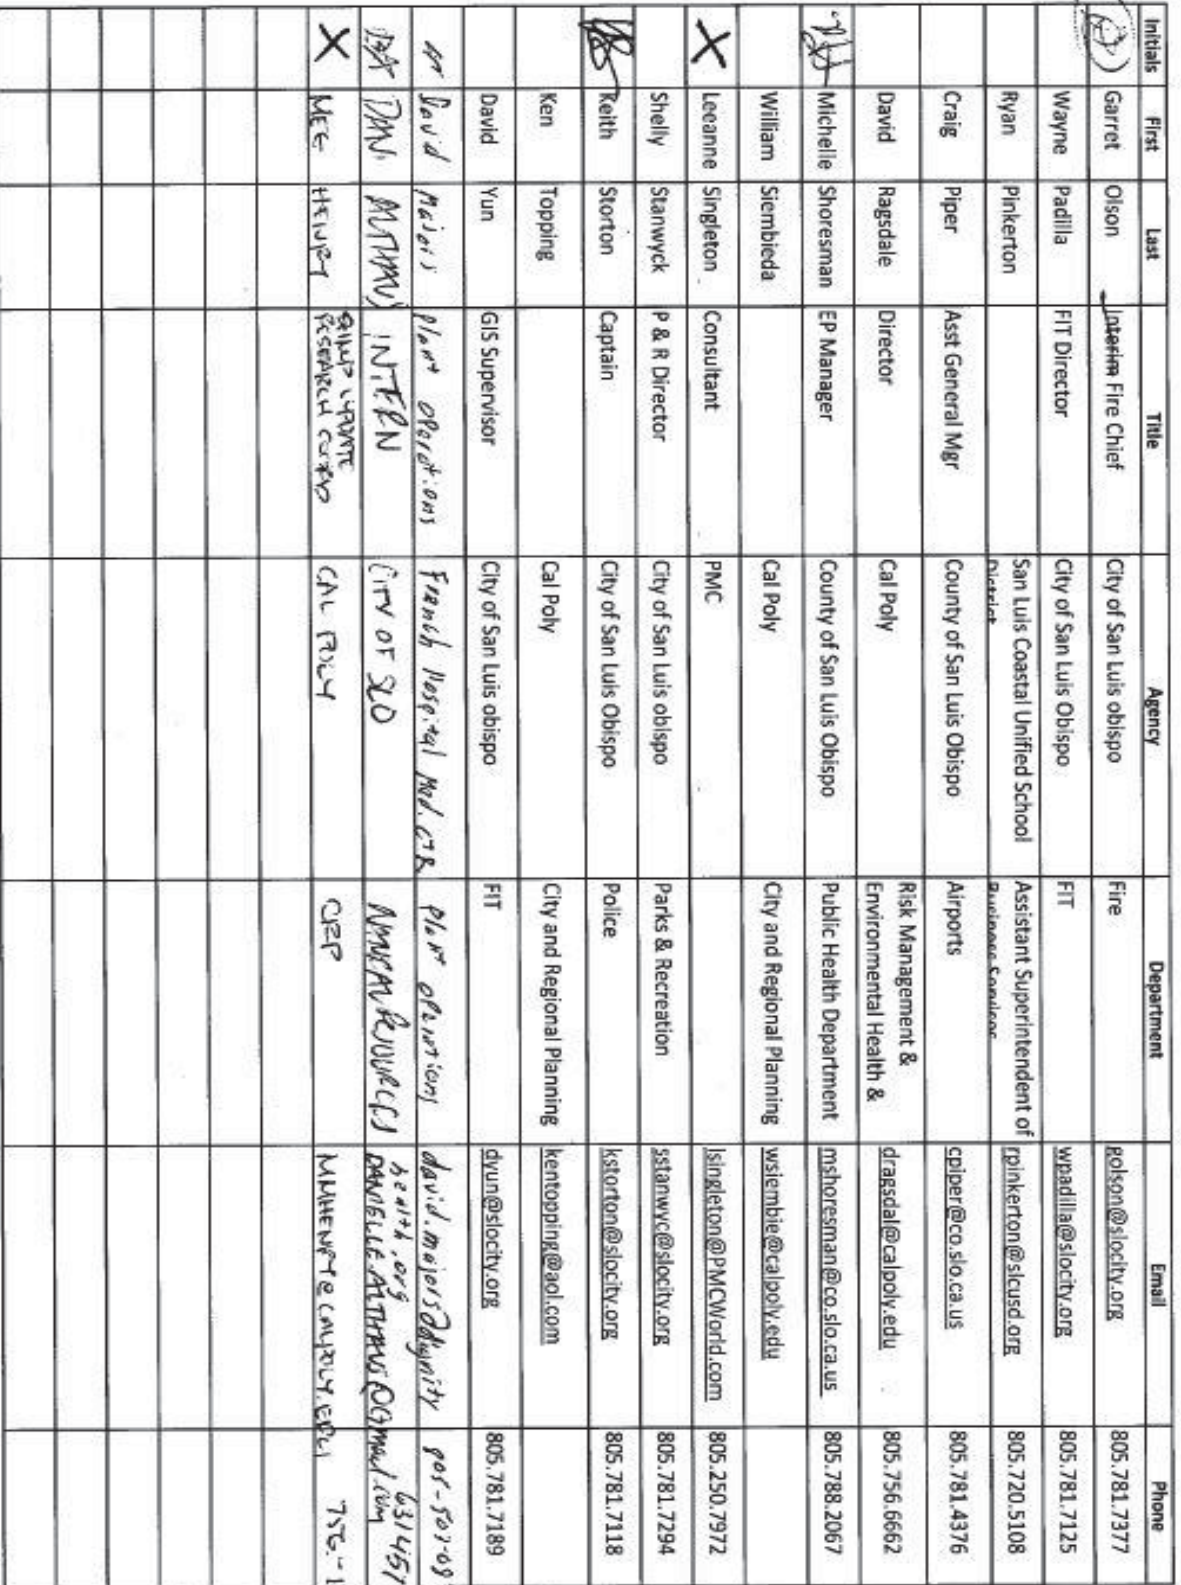 Initials First Last Title Agency Department Email Phone
Garret Olson Interim Fire Chief City of San Luis obispo Fire golson@slocity.org 805.781.7377
Wayne Padilla FIT Director City of San Luis Obispo FIT wpadilla@slocity.org 805.781.7125
Ryan Pinkerton San Luis Coastal Unified School Assistant Superintendent of rpinkerton@slcusd.org 805.720.5108
District Business Services
Craig Piper Asst General Mgr County of San Luis Obispo Airports cpiper@co.slo.ca.us 805.781.4376
David Ragsdale Director Cal Poly Risk Management & dragsdal@calpoly.edu 805.756.6662
Environmental Health &
Michelle Shoresman EP Manager County of San Luis Obispo Public Health Department mshoresman@co.slo.ca.us 805.788.2067
William Siembieda Cal Poly City and Regional Planning wsiembie@calpoly.edu
X Leeanne Singleton Consultant PMC lsingleton@PMCWorld.com 805.250.7972
Shelly Stanwyck P & R Director City of San Luis obispo Parks & Recreation sstanwyc@slocity.org 805.781.7294
Keith Storton Captain City of San Luis Obispo Police kstorton@slocity.org 805.781.7118
Ken Topping Cal Poly City and Regional Planning kentopping@aol.com
David Yun GIS Supervisor City of San Luis obispo FIT dyun@slocity.org 805.781.7189
David Majors plant operations French Hospital Med. CTR plant operations david.majors@dignity
health.org
DAN ALTHAUS INTERN CITY OF SLO NATURAL RESOURCES DANIELLE.ALTHAUS@Gmail.com 631457
X MEG HENRY UPDATE CAL POLY CRP MMHENRY@CALPOLY.EDU 756-
RESEARCH